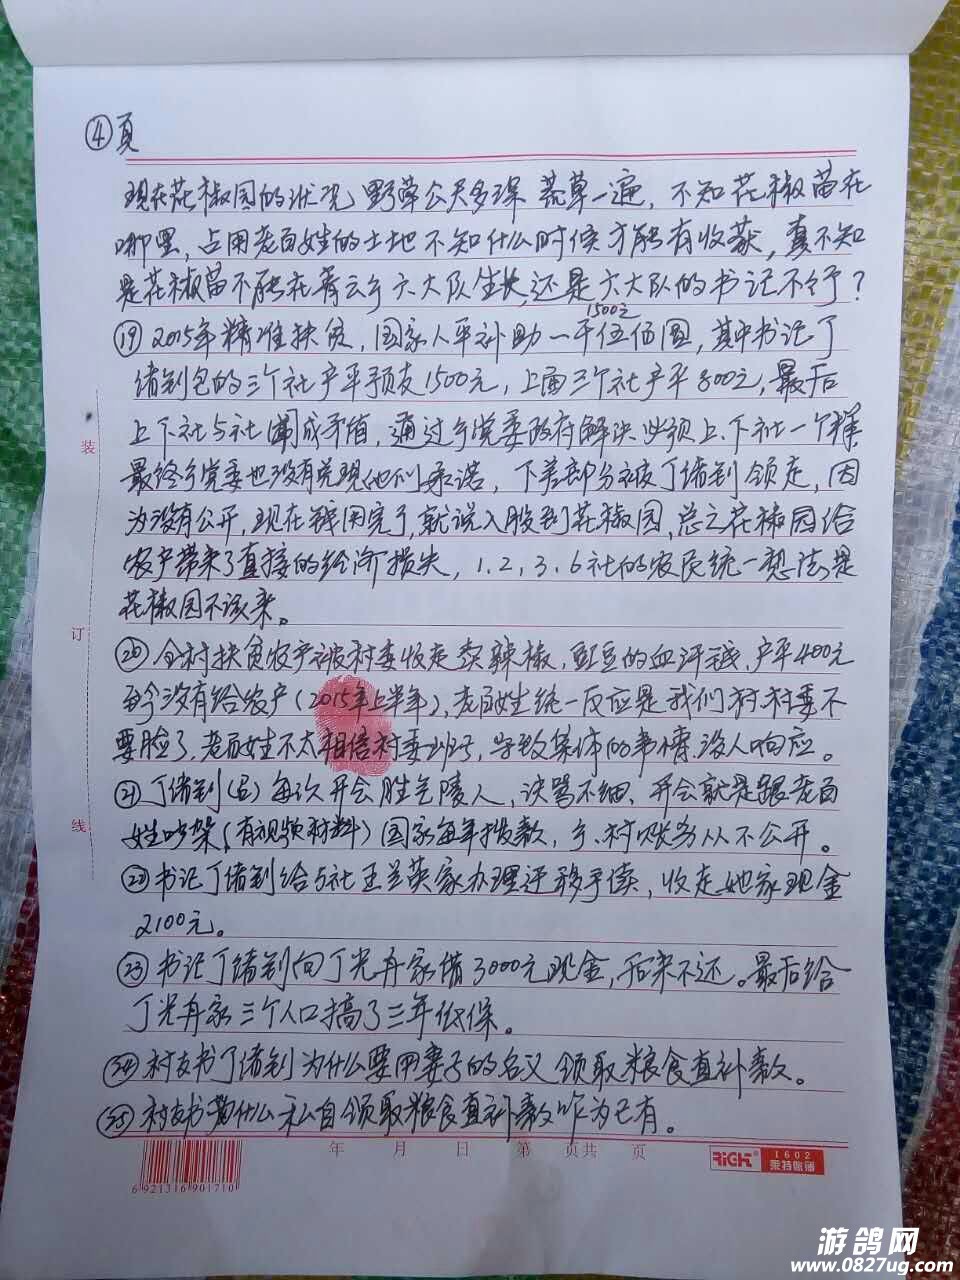 ④页
现在花椒园的状况 野草公尺多深 荒草一遍，不知花椒苗在
哪里，占用老百姓的土地不知什么时候才能有收获，真不知
是花椒苗不能在青云乡六大队生长，还是六大队的书记不行？
1500元
⑲ 2015年精准扶贫，国家人平补助一千伍佰圆，其中书记丁
绪剑包的三个社户平预支1500元，上面三个社户平800元，最后
上下社与社闹成矛盾，通过乡党委政府解决必须上、下社一个样
最终乡党委也没有兑现他们承诺，下差部分被丁绪剑领走，因
为没有公开，现在钱用完了，就说入股到花椒园，总之花椒园给
农户带来了直接的经济损失，1.2，3.6社的农民统一想法是
花椒园不该来。
⑳ 全村扶贫农户被村委收走卖辣椒，豇豆的血汗钱，户平400元
至今没有给农户（2015年上半年），老百姓统一反应是我们村.村委不
要脸了，老百姓不太相信村委班子，导致集体的事情，没人响应。
㉑ 丁绪剑 每次开会胜气陵人，决骂不细，开会就是跟老百
姓吵架，（有视频材料）国家每年拨款，乡、村账务从不公开。
㉒ 书记丁绪剑给5社王兰英家办理迁移手续，收走她家现金
2100元。
㉓ 书记丁绪剑向丁光舟家借3000元现金，后来不还。最后给
丁光舟家三个人口搞了三年低保。
㉔ 村支书丁绪剑为什么要用妻子的名义领取粮食直补款。
㉕ 村支书为什么私自领取粮食直补款作为已有。
装
订
线
年 月 日 第 页共 页
RiCH 1602
莱特账簿
6 921316 901710
游鸽网
www.0827ug.com